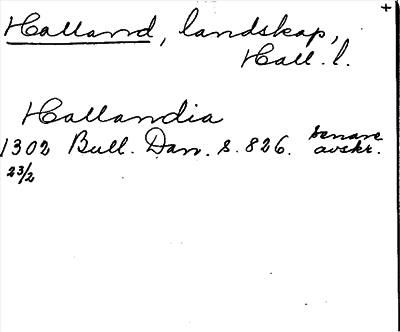 Halland, landskap,
Hall. l.
Hallandia
1302 Bull. Dan. s. 826. senare avskr.
23/2